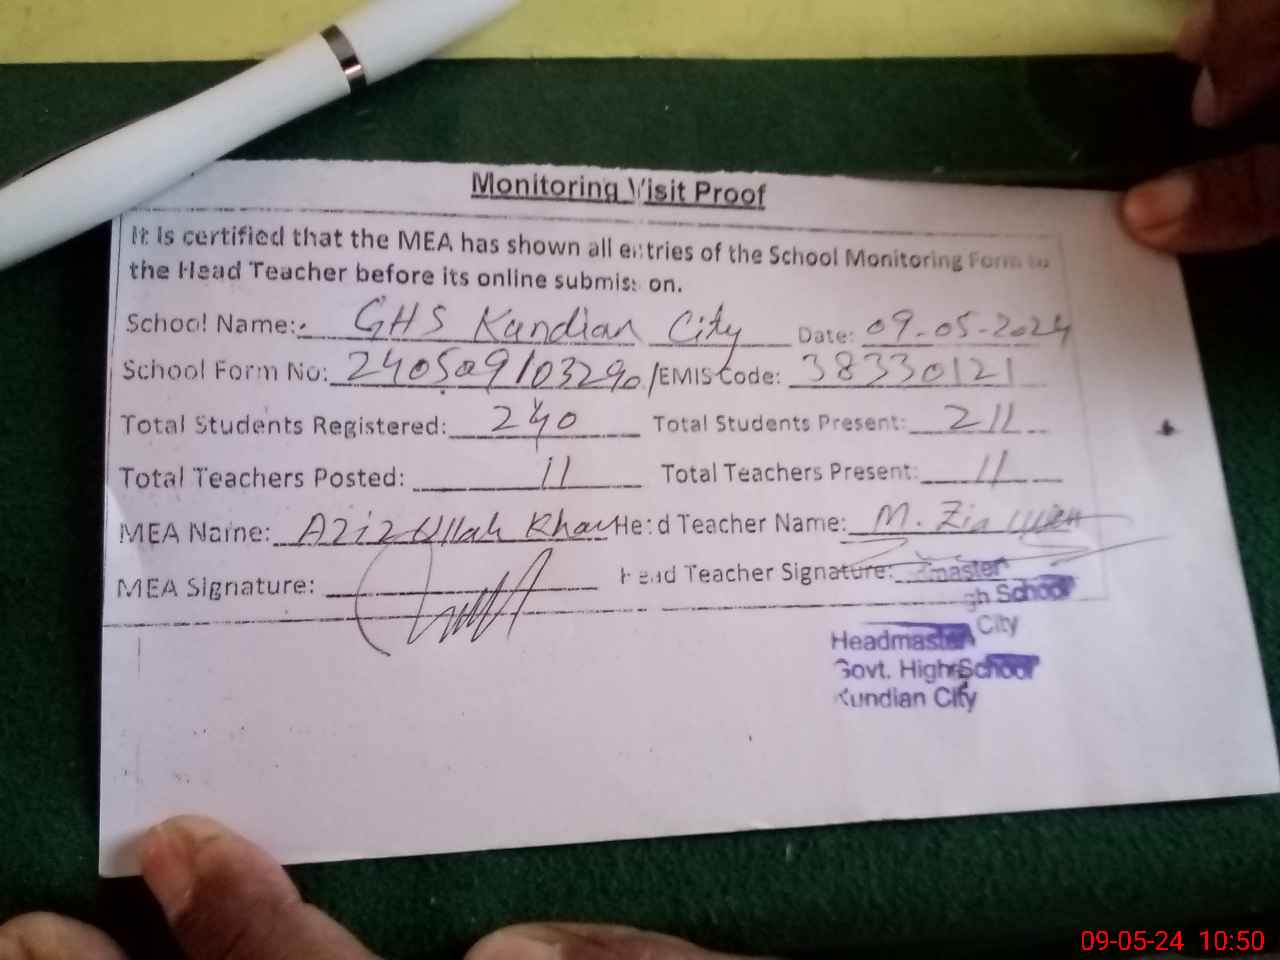 Monitoring Visit Proof
It is certified that the MEA has shown all entries of the School Monitoring Form to
the Head Teacher before its online submission.
School Name: GHS Kundian City Date: 09-05-2024
School Form No: 240509103290 /EMIS Code: 38330121
Total Students Registered: 240 Total Students Present: 211
Total Teachers Posted: 11 Total Teachers Present: 11
MEA Name: Aziz Ullah Khan Head Teacher Name: M. Zia
MEA Signature: Head Teacher Signature:
master
gh School
City
Headmaster
Govt. High School
Kundian City
09-05-24 10:50